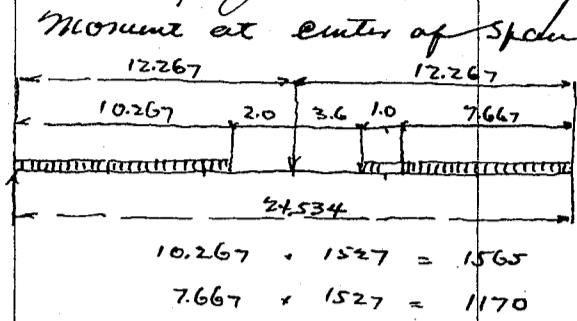 Moment at center of span
12.267 12.267
10.267 2.0 3.6 1.0 7.667
24.534
10.267 × 1527 = 1565
7.667 × 1527 = 1170